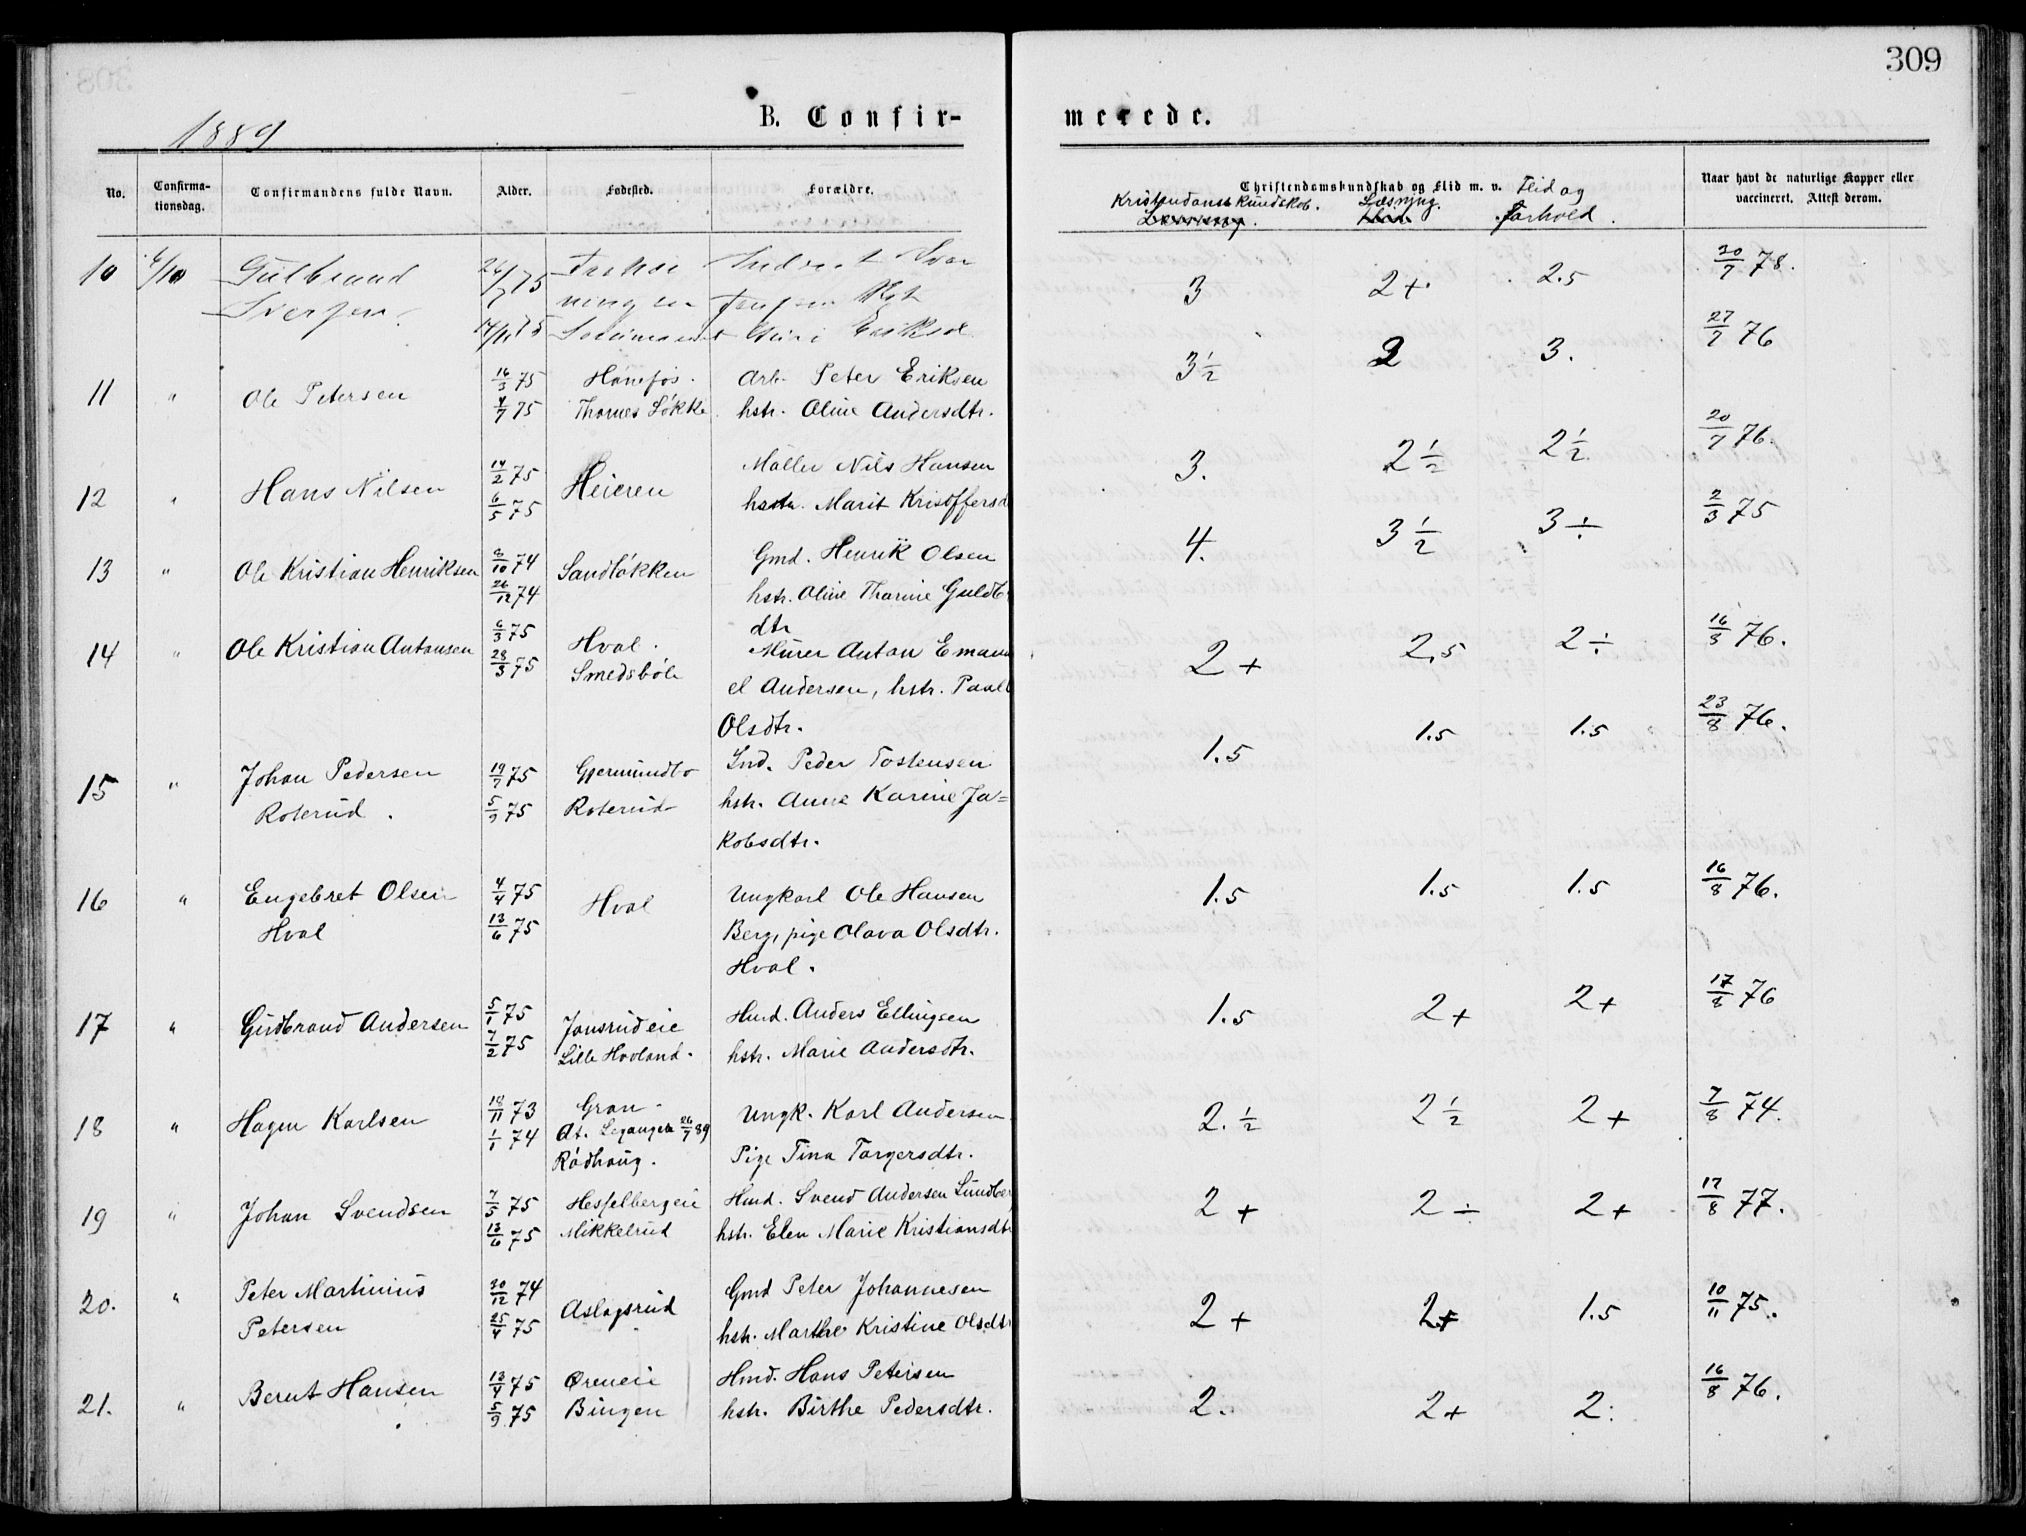 309
1889
B. Confir-
merede.
No.
Confirma-
tionsdag.
Confirmandens fulde Navn.
Alder.
Fødested.
Forældre.
Christendomskundskab og Flid m. v.
Kristendomskundskab. Læsning. Flid og
Forhold.
Naar havt de naturlige Kopper eller
vaccineret. Attest derom.
10 6/10 Gulbrand
Iversen
17/11 75 Guri Eriksd
3 2+ 2.5 20/7 78.
11 " Ole Petersen 16/3 75 Hønefos. Arb. Peter Eriksen
4/7 75 Thomes Løkke. hstr. Oline Andersdtr.
3 1/2 2 3. 27/7 76
12 " Hans Nilsen 14/2 75 Heieren Møller Nils Hansen
6/5 75 Marit Kristoffersd
3. 2 1/2 2 1/2 20/7 76.
13 " Ole Kristian Henriksen 8/10 74 Sandløkken Gmd. Henrik Olsen
26/12 74 hstr. Oline Thorine Guldb
dtr
4. 3 1/2 3 ÷ 2/3 75
14 " Ole Kristian Antonsen 6/3 75 Hval. Murer Anton Emanu
28/3 75 Smedsbøle el Andersen, hstr.
Olsdtr.
2+ 2.5 2 ÷ 16/8 76.
15 " Johan Pedersen 19/7 75 Gjermundbo Ind. Peder Tostensen
Roterud. 5/9 75 Roterud hstr. Anne Karine Ja=
kobsdtr.
1.5 1.5 1.5 23/8 76.
16 " Engebret Olsen 4/4 75 Hval Ungkarl Ole Hansen
Hval 13/6 75 Berg, pige Olava Olsdtr.
Hval.
1.5 1.5 1.5 16/8 76.
17 " Gudbrand Andersen 5/1 75 Jonsrudeie Hmd. Anders Ellingsen
7/2 75 Lille Hovland. hstr. Marie Andersdtr.
1.5 2+ 2+ 17/8 76
18 " Hagen Karlsen 18/11 73 Gran. Ungk. Karl Andersen
1/1 74 At. 26/7 89
Rødhaug. Pige Tina Torgersdtr.
2. 1/2 2 1/2 2+ 7/8 74.
19 " Johan Svendsen 7/5 75 Hesselbergeie Hmd. Svend Andersen Lundbe
13/6 75 Mikkelrud hstr. Elen Marie Kristiansdtr
2+ 2 ÷ 2+ 17/8 77.
20. " Peter Martinius 30/12 74 Aslagsrud Gmd Peter Johannesen
Petersen 25/4 75 hstr. Marthe Kristine Olsdtr
2+ 2+ 1.5 10/11 75.
21. " Bernt Hansen 13/4 75 Øreneie Hmd. Hans Petersen
5/9 75 Bingen hstr. Birthe Pedersdtr.
2. 2+ 2: 16/8 76.